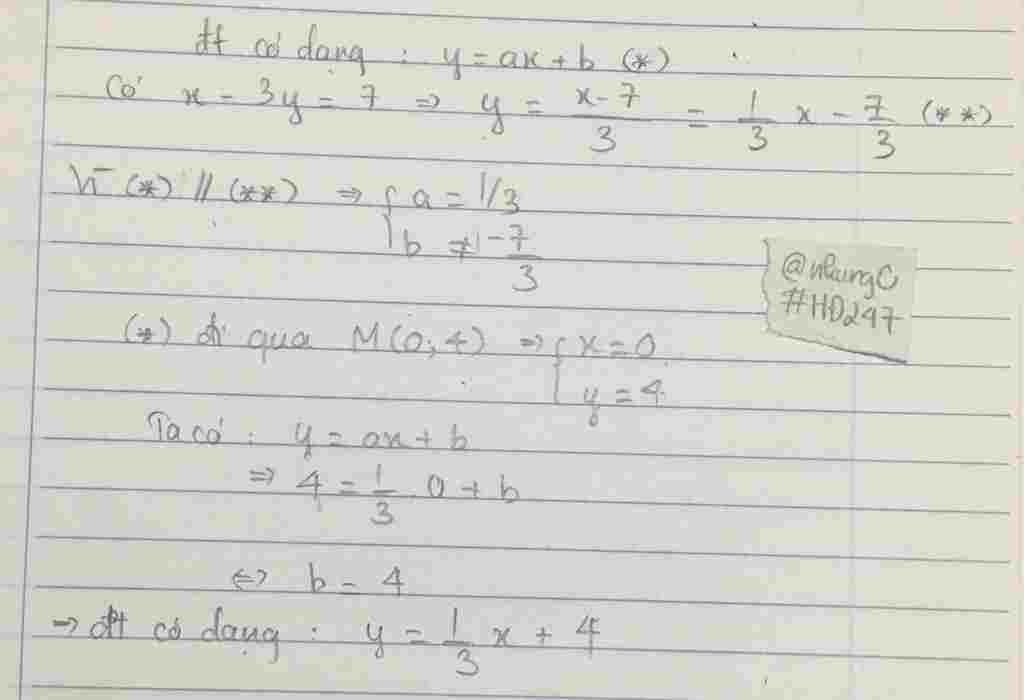 đt có dạng : y = ax + b (*)
Có x - 3y = 7 => y = \frac{x-7}{3} = \frac{1}{3} x - \frac{7}{3} (**)
Vì (*) // (**) => { a = 1/3
b ≠ -\frac{7}{3}
@nhungC
#HD247
(*) đi qua M(0;4) => { x = 0
y = 4
Ta có : y = ax + b
=> 4 = \frac{1}{3} . 0 + b
<=> b = 4
=> đt có dạng : y = \frac{1}{3} x + 4